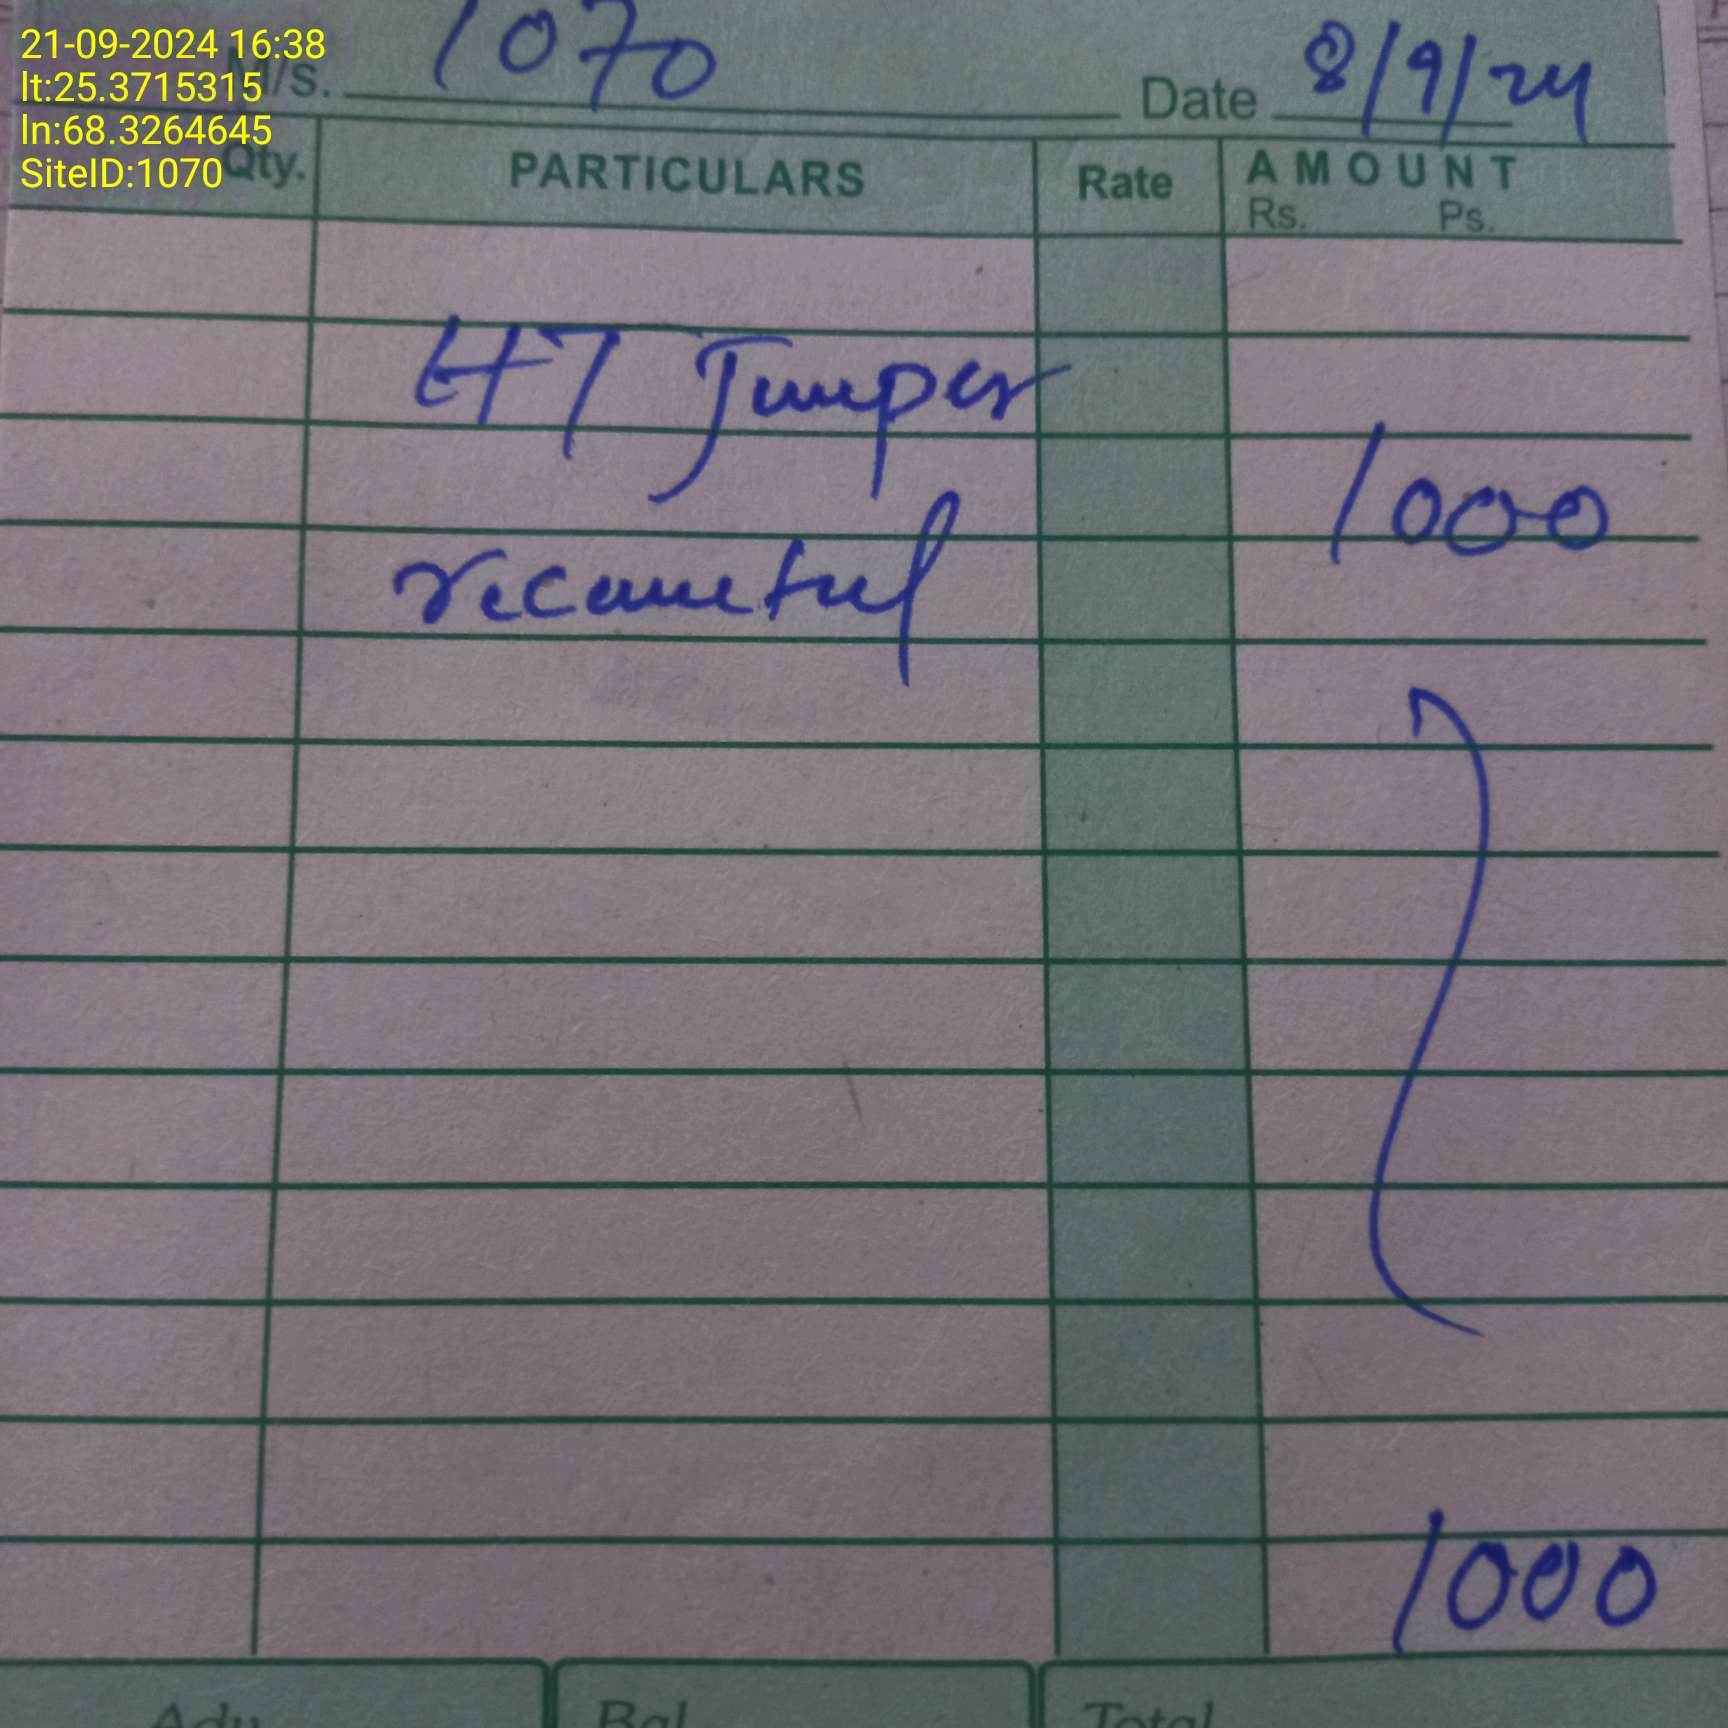 21-09-2024 16:38
lt:25.3715315
ln:68.3264645
SiteID:1070
M/s. 1070 Date 8/9/24
Qty. PARTICULARS Rate AMOUNT
Rs. Ps.
HT Jumper
1000
1000
Adv Bal Total